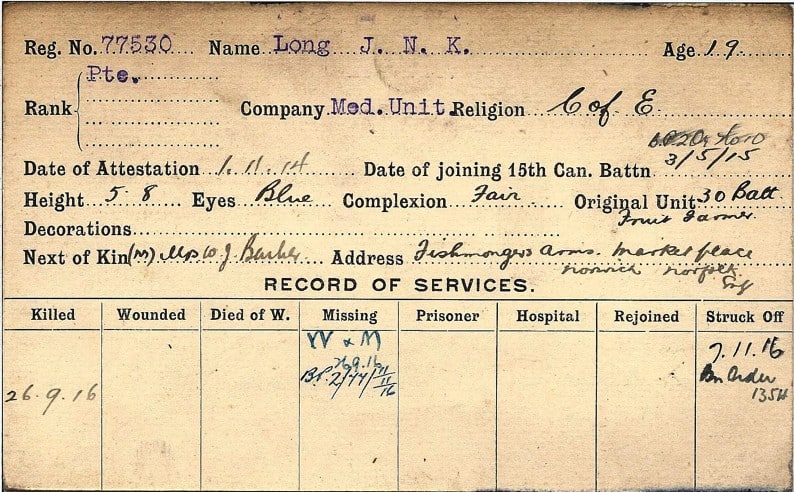 Reg. No. 77530 Name Long J. N. K. Age 19
Pte.
Rank Company Med. Unit Religion C of E
Date of Attestation 1.11.14 Date of joining 15th Can. Battn 3/5/15
Height 5 8 Eyes Blue Complexion Fair Original Unit 30 Batt
Decorations Fruit Farmer
Next of Kin (M) Mrs W J Barker Address Fishmongers Arms. Market place
Norwich Norfolk Eng
RECORD OF SERVICES.
Killed Wounded Died of W. Missing Prisoner Hospital Rejoined Struck Off
W & M 7.11.16
26.9.16 Bn Order
26.9.16 135H